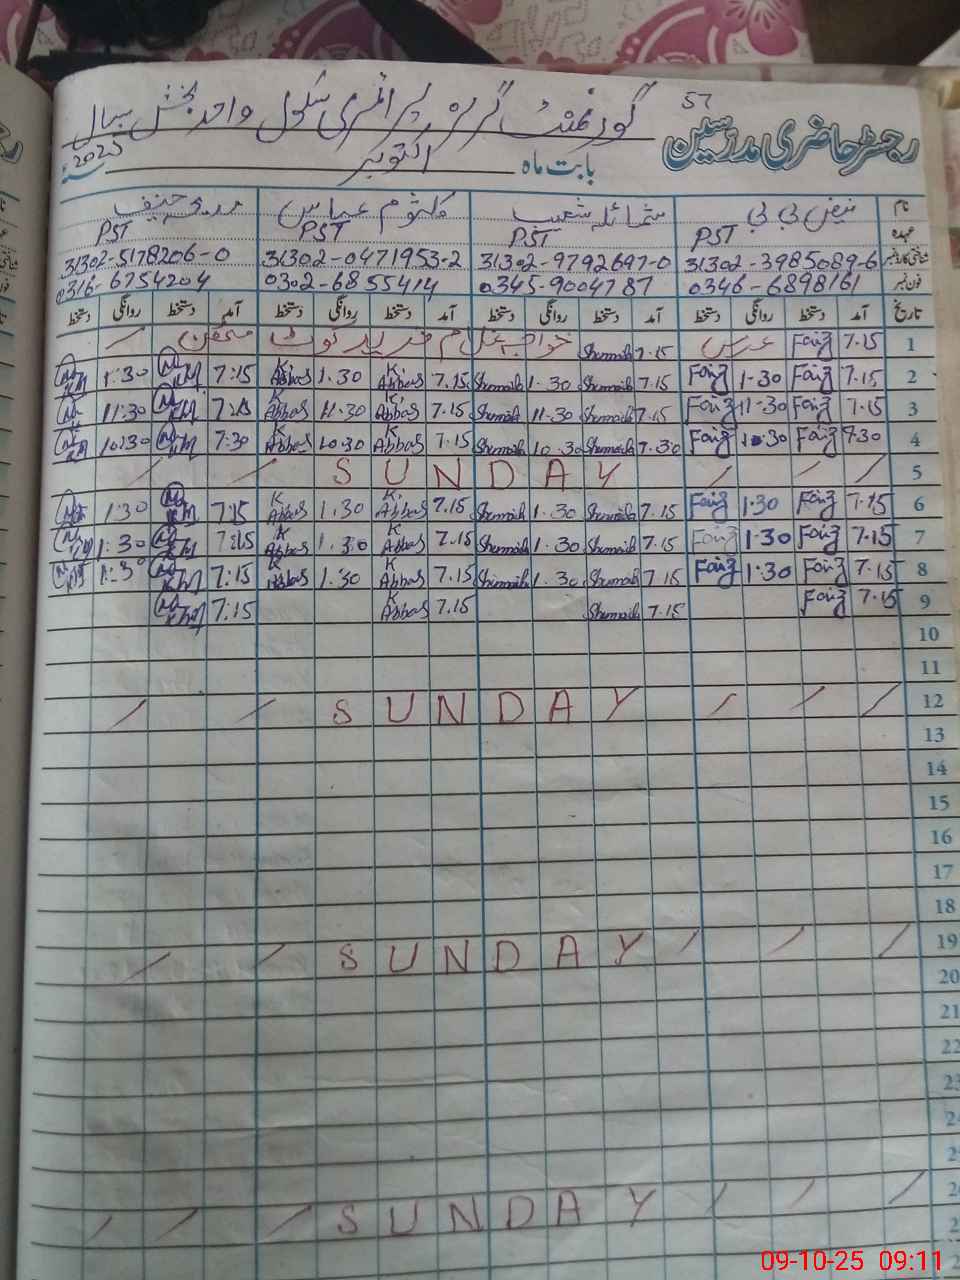 57
گورنمنٹ گرلز پرائمری سکول واحد بخش سیال
رجسٹر حاضری مدرسین
بابت ماہ اکتوبر 2025
نام فیض بی بی شمائلہ شعیب کلثوم عباس حنیف
عہدہ PST PST PST PST
شناختی کارڈ نمبر 31302-3985089-6 31302-9792697-0 31302-0471953-2 31302-5178206-0
فون نمبر 0346-6898161 0345-9004787 0302-6855414 0316-6754204
تاریخ آمد دستخط روانگی دستخط آمد دستخط روانگی دستخط آمد دستخط روانگی دستخط آمد دستخط روانگی دستخط
1 7.15 Faiz عرس 7.15 Shumaila خواجہ غلام فرید کوٹ مٹھن
2 7.15 Faiz 1-30 Faiz 7.15 Shumaila 1.30 Shumaila 7.15 K. Abbas 1.30 K. Abbas 7:15 1:30
3 7.15 Faiz 11-30 Faiz 7.15 Shumaila 11-30 Shumaila 7.15 K. Abbas 11.30 K. Abbas 7:15 11:30
4 7.30 Faiz 10:30 Faiz 7.30 Shumaila 10.30 Shumaila 7.15 K. Abbas 10.30 K. Abbas 7:30 10:30
5 SUNDAY
6 7.15 Faiz 1.30 Faiz 7.15 Shumaila 1.30 Shumaila 7.15 K. Abbas 1.30 K. Abbas 7:15 1:30
7 7.15 Faiz 1.30 Faiz 7.15 Shumaila 1.30 Shumaila 7.15 K Abbas 1.30 K Abbas 7:15 1:30
8 7.15 Faiz 1:30 Faiz 7.15 Shumaila 1.30 Shumaila 7.15 K Abbas 1.30 K Abbas 7:15 1:30
9 7.15 Faiz 7.15 Shumaila 7.15 K Abbas 7:15
10
11
12 SUNDAY
13
14
15
16
17
18
19 SUNDAY
20
21
22
23
24
25
26 SUNDAY
09-10-25 09:11